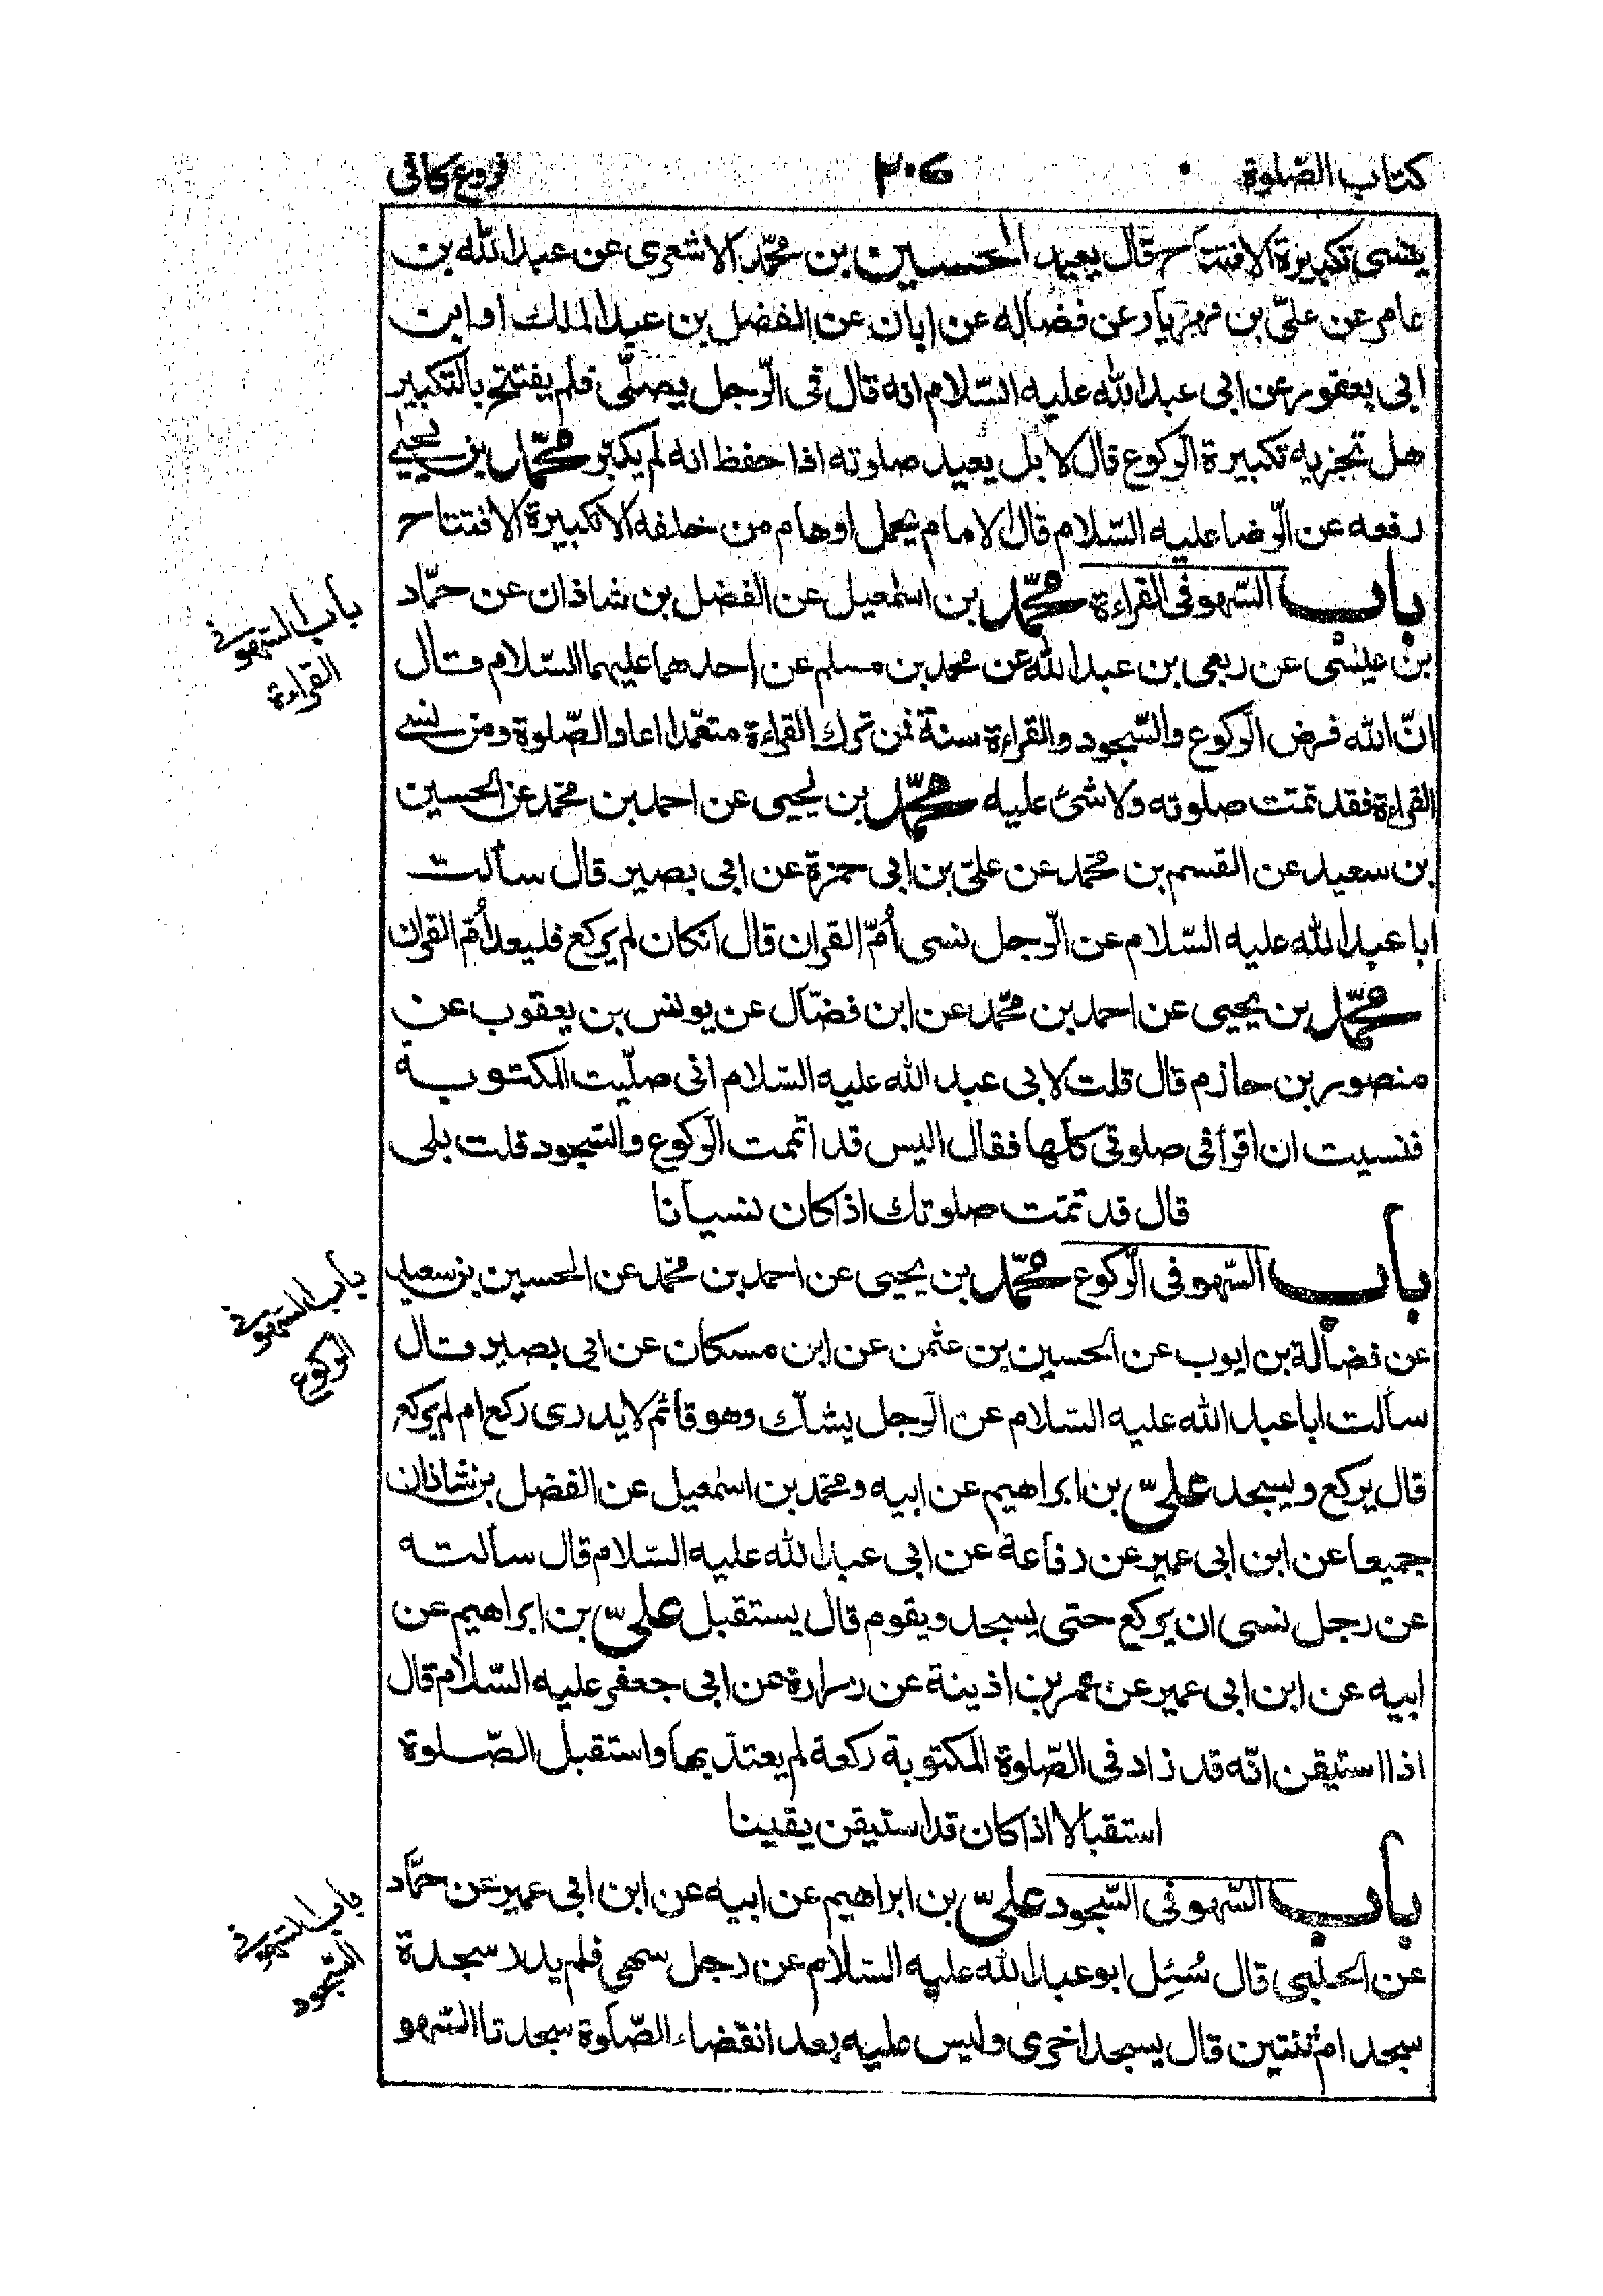 كتاب الصّلوة
٢٠٦
فروع كافى
ينسى تكبيرة الافتتاح قال يعيد الحسين بن محمّد الاشعرى عن عبد الله بن
عامر عن علىّ بن مهزيار عن فضالة عن ابان عن الفضل بن عبد الملك او ابن
ابى يعفور عن ابى عبد الله عليه السّلام انه قال فى الرّجل يصلّى فلم يفتتح بالتكبير
هل تجزيه تكبيرة الرّكوع قال لا بل يعيد صلوته اذا حفظ انه لم يكبّر محمّد بن يحيى
رفعه عن الرّضا عليه السّلام قال الامام يحمل اوهام من خلفه الا تكبيرة الافتتاح
باب السّهو فى القراءة محمّد بن اسمعيل عن الفضل بن شاذان عن حمّاد
بن عيسى عن ربعى بن عبد الله عن محمد بن مسلم عن احدهما عليهما السّلام قال
انّ الله فرض الرّكوع والسّجود والقراءة سنة فمن ترك القراءة متعمّدا اعاد الصّلوة ومن نسى
القراءة فقد تمّت صلوته ولا شئ عليه محمّد بن يحيى عن احمد بن محمّد عن الحسين
بن سعيد عن القسم بن محمّد عن علىّ بن ابى حمزة عن ابى بصير قال سألت
ابا عبد الله عليه السّلام عن الرّجل نسى أمّ القران قال ان كان لم يركع فليعد أمّ القران
محمّد بن يحيى عن احمد بن محمّد عن ابن فضّال عن يونس بن يعقوب عن
منصور بن حازم قال قلت لابى عبد الله عليه السّلام انى صلّيت المكتوبة
فنسيت ان اقرأ فى صلوتى كلّها فقال اليس قد اتممت الرّكوع والسّجود قلت بلى
قال قد تمّت صلوتك اذا كان نسيانا
باب السّهو فى الرّكوع محمّد بن يحيى عن احمد بن محمّد عن الحسين بن سعيد
عن فضالة بن ايوب عن الحسين بن عثمن عن ابن مسكان عن ابى بصير قال
سألت ابا عبد الله عليه السّلام عن الرّجل يشكّ وهو قائم لا يدرى ركع ام لم يركع
قال يركع ويسجد علىّ بن ابراهيم عن ابيه ومحمّد بن اسمعيل عن الفضل بن شاذان
جميعا عن ابن ابى عمير عن رفاعة عن ابى عبد الله عليه السّلام قال سألته
عن رجل نسى ان يركع حتى يسجد ويقوم قال يستقبل علىّ بن ابراهيم عن
ابيه عن ابن ابى عمير عن عمر بن اذينة عن زرارة عن ابى جعفر عليه السّلام قال
اذا استيقن انّه قد زاد فى الصّلوة المكتوبة ركعة لم يعتدّ بها واستقبل الصّلوة
استقبالا اذا كان قد استيقن يقينا
باب السّهو فى السّجود علىّ بن ابراهيم عن ابيه عن ابن ابى عمير عن حمّاد
عن الحلبى قال سُئِل ابو عبد الله عليه السّلام عن رجل سهى فلم يدر سجدة
سجد ام ثنتين قال يسجد اخرى وليس عليه بعد انقضاء الصّلوة سجدتا السّهو
باب السّهو فى
القراءة
باب السّهو فى
الرّكوع
باب السّهو فى
السّجود